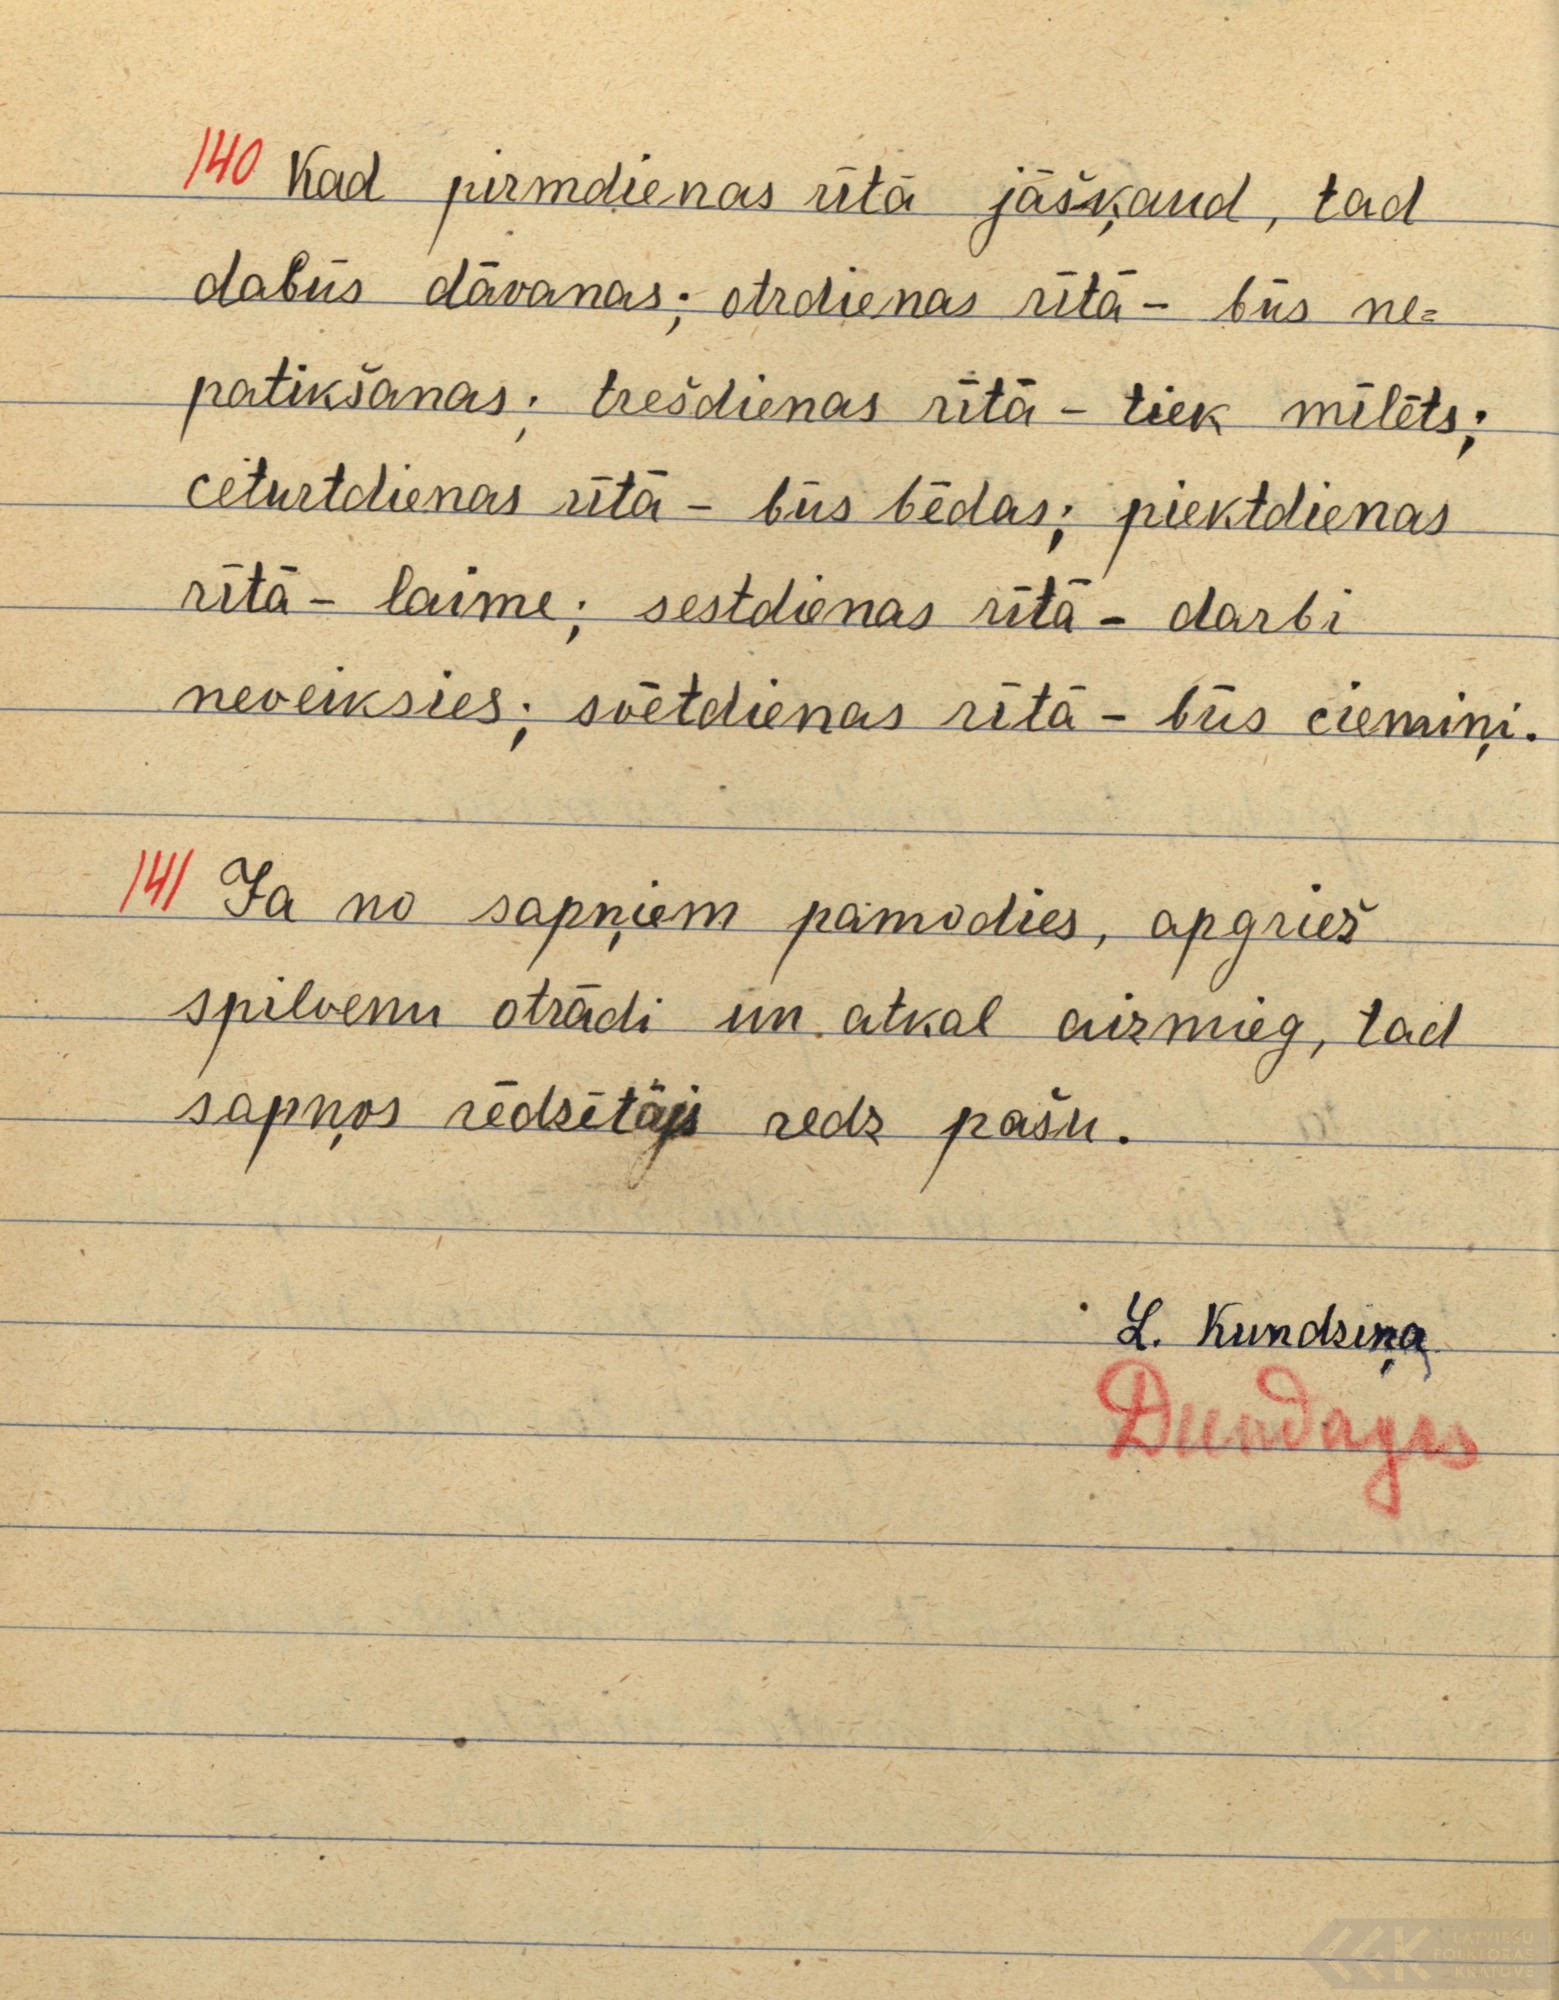 140 Kad pirmdienas rītā jāšķaud, tad
dabūs dāvanas; otrdienas rītā – būs ne=
patikšanas; trešdienas rītā – tiek mīlēts;
ceturtdienas rītā – būs bēdas; piektdienas
rītā – laime; sestdienas rītā – darbi
neveiksies; svētdienas rītā – būs ciemiņi.
141 Ja no sapņiem pamodies, apgriež
spilvenu otrādi un atkal aizmieg, tad
sapņos rēdzētājs redz pašu.
L. Kundziņa
Dundagas
LATVIEŠU
FOLKLORAS
KRĀTUVE